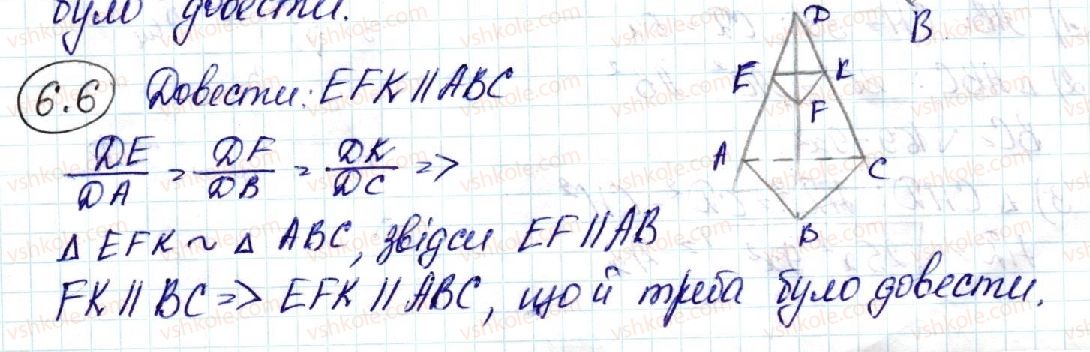 було довести.
6.6 Довести: EFK || ABC
DE/DA = DF/DB = DK/DC =>
△ EFK ~ △ ABC, звідси EF || AB
FK || BC => EFK || ABC, що й треба було довести.
D
B
E
K
F
A
C
B
vshkole.com